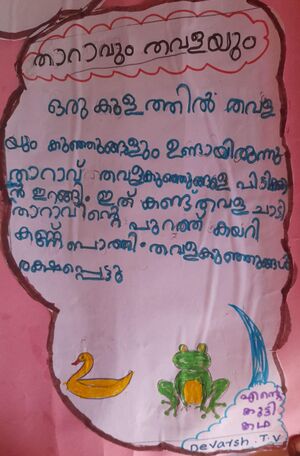 താറാവും തവളയും
ഒരു കുളത്തിൽ തവള
യും കുഞ്ഞുങ്ങളും ഉണ്ടായിരുന്നു
താറാവ് തവളകുഞ്ഞുങ്ങളെ പിടിക്കു
ൻ ഇറങ്ങി. ഇത് കണ്ട തവള ചാടി
താറാവിന്റെ പുറത്ത് കയറി
കണ്ണ് പൊത്തി. തവളകുഞ്ഞുങ്ങൾ
രക്ഷപ്പെട്ടു
എന്റെ
കുട്ടി
കഥ
Devarsh.T.V